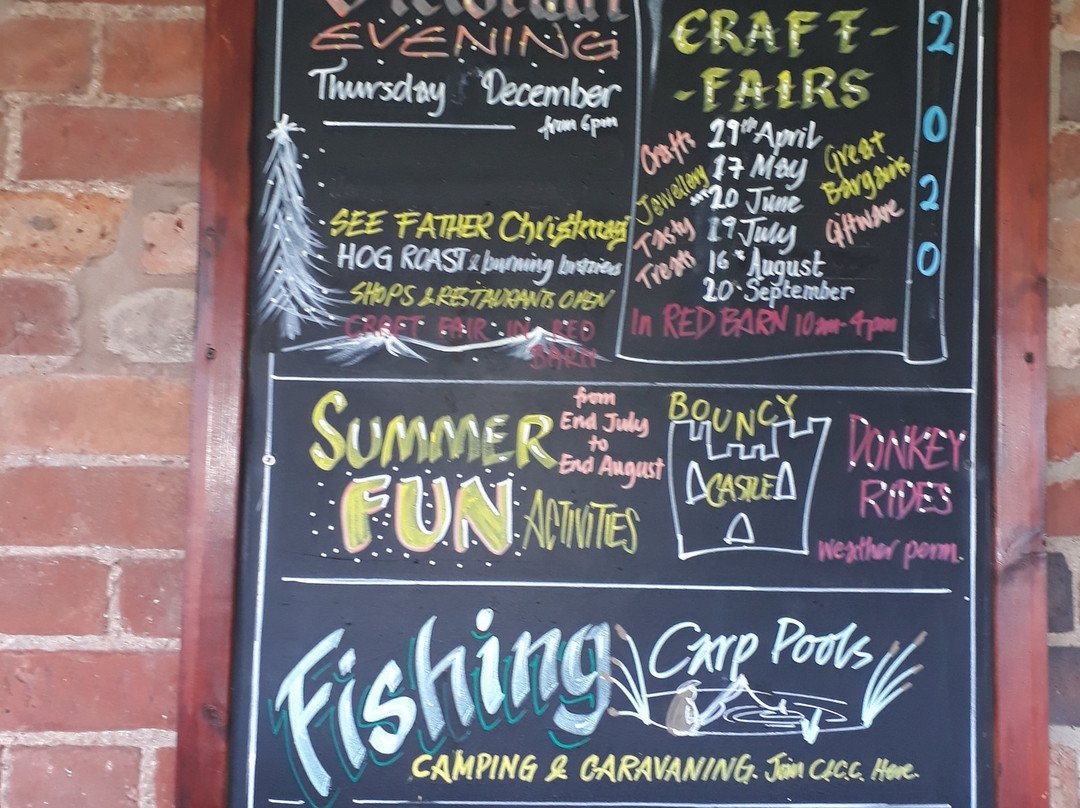 Victorian
EVENING
Thursday December
from 6pm
SEE FATHER Christmas
HOG ROAST & burning braziers
SHOPS & RESTAURANTS OPEN
CRAFT FAIR IN RED
BARN
CRAFT-
-FAIRS
2
0
2
0
Crafts
Jewellery
Tasty
Treats
29th April
17 May
20 June
19 July
16th August
20 September
Great
Bargains
Giftware
In RED BARN 10am-4pm
SUMMER
FUN ACTIVITIES
from
End July
to
End August
BOUNCY
CASTLE
DONKEY
RIDES
weather perm.
Fishing
Carp Pools
CAMPING & CARAVANING. Join C&C.C. Here.